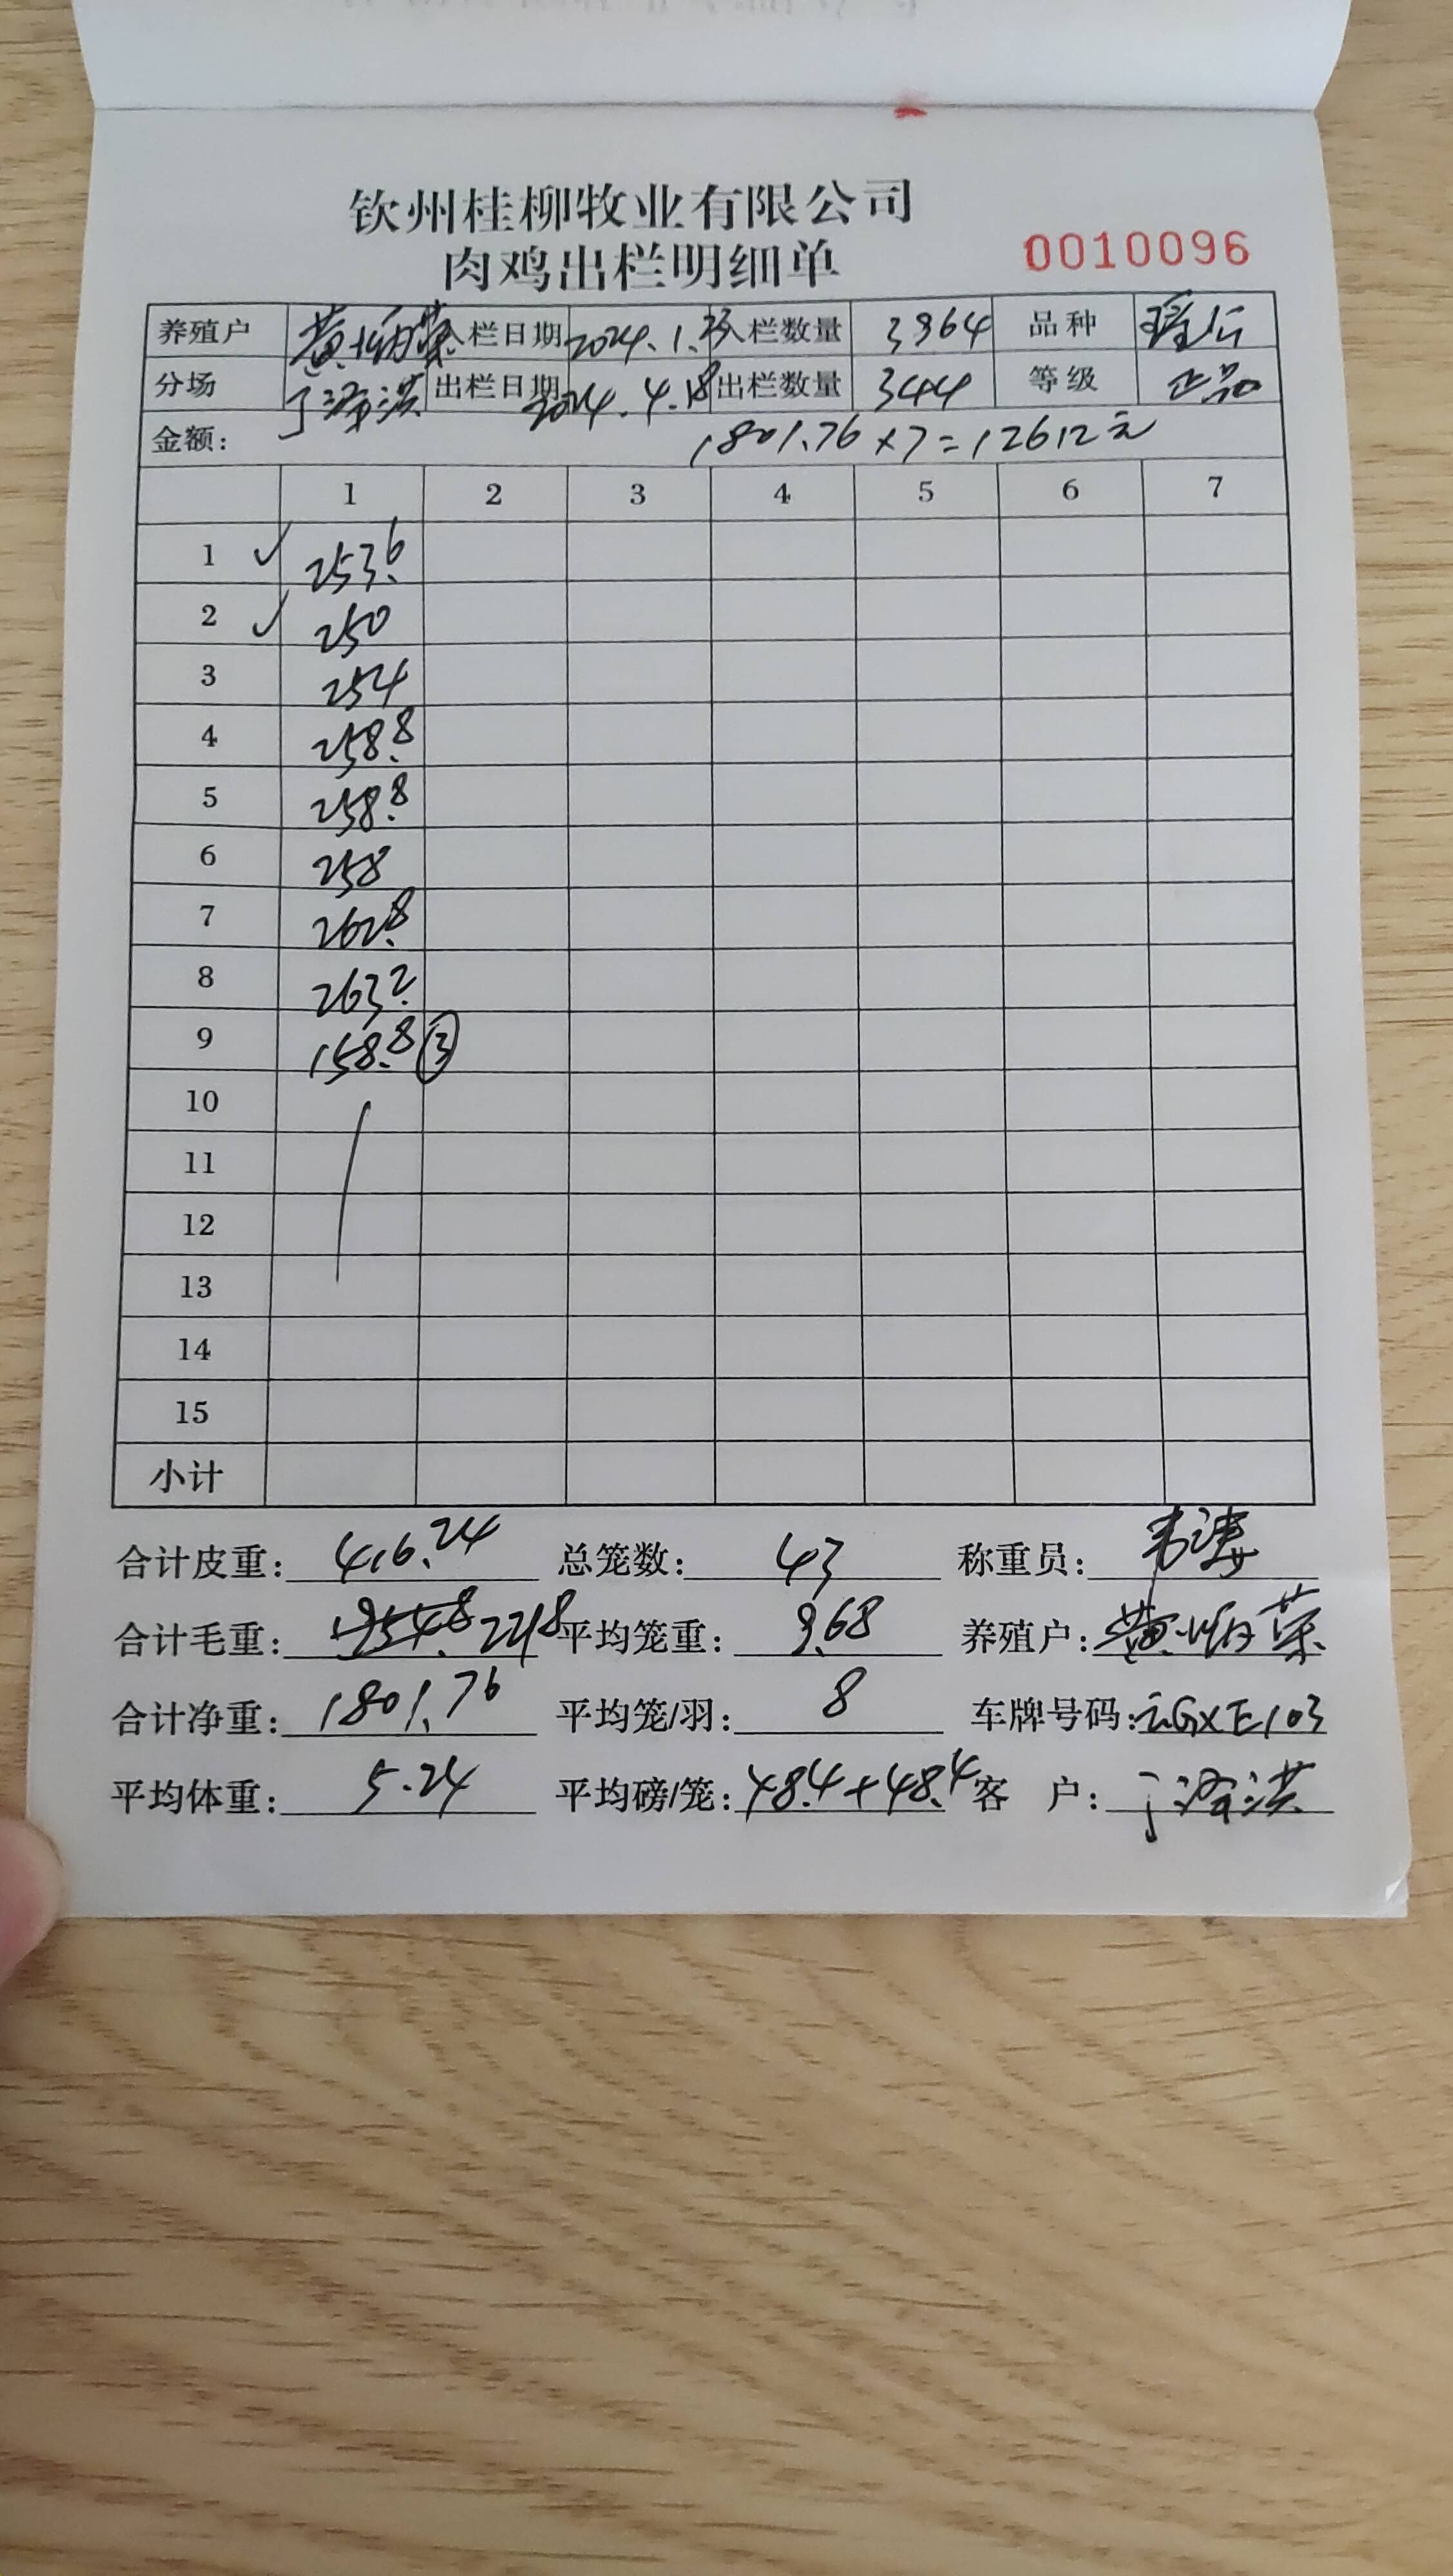 钦州桂柳牧业有限公司
肉鸡出栏明细单
0010096
养殖户 黄炳荣 入栏日期 2024.1. 入栏数量 3964 品种
分场 丁泽洪 出栏日期 2024.4.18 出栏数量 344 等级 正品
金额: 1801.76×7=12612元
1 2 3 4 5 6 7
1 ✓ 253.6
2 ✓ 250
3 254
4 258.8
5 258.8
6 258
7 262.8
8 263.2
9 158.8 ③
10
11
12
13
14
15
小计
合计皮重: 416.24 总笼数: 43 称重员: 韦涛
合计毛重: 2218 平均笼重: 9.68 养殖户: 黄炳荣
合计净重: 1801.76 平均笼/羽: 8 车牌号码: GXE103
平均体重: 5.24 平均磅/笼: 48.4+48.4 客 户: 丁泽洪